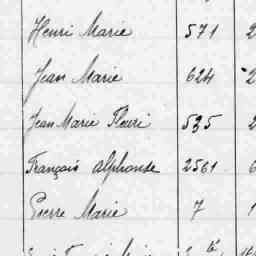 Henri Marie 571 2
Jean Marie 624 2
Jean Marie Fleuri 535 2
François Alphonse 2561 6
Pierre Marie 7 1